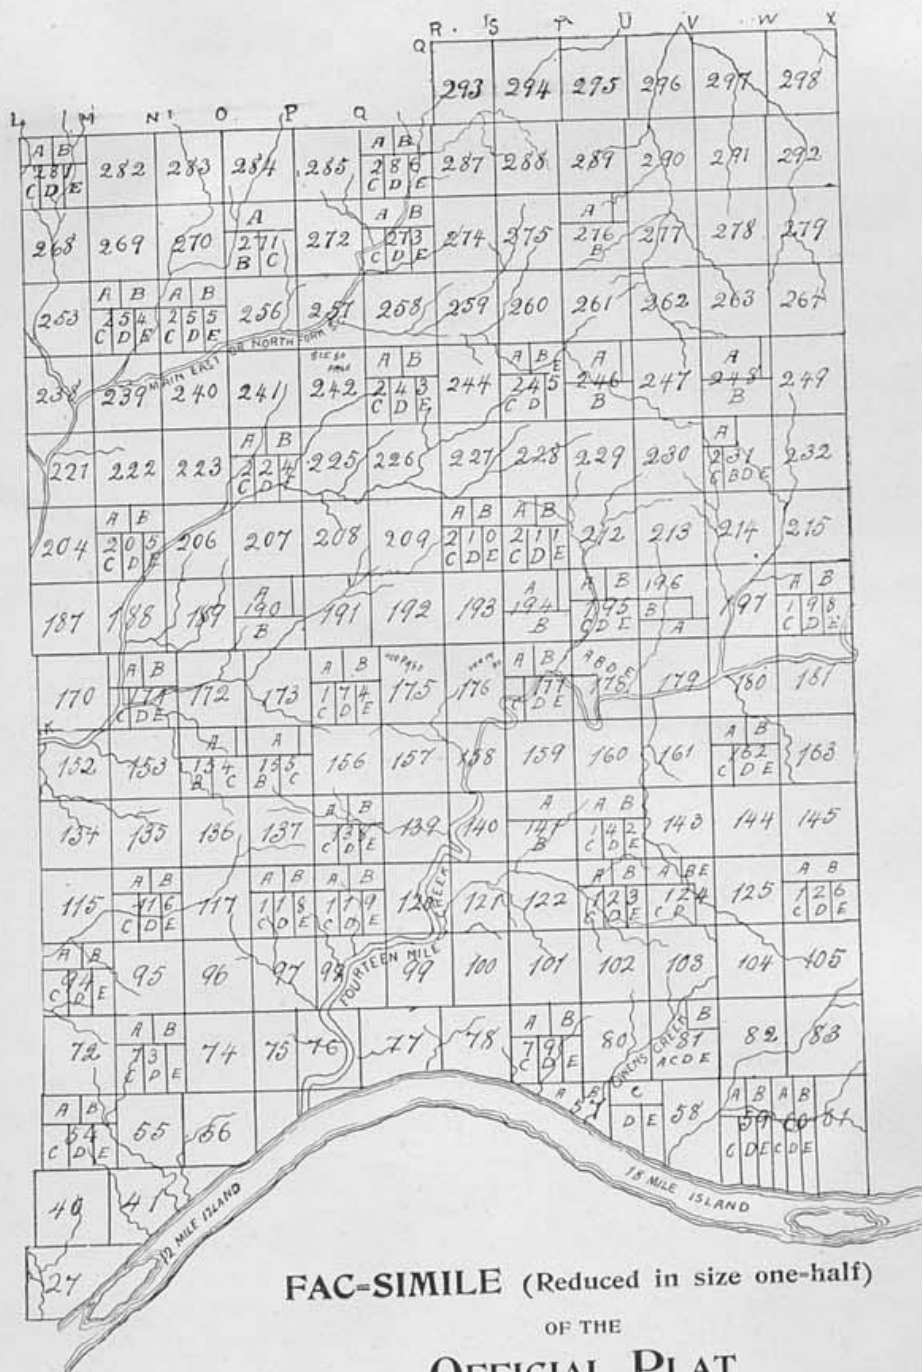 R. S T U V W X
Q
293 294 295 296 297 298
L M N O P Q
A B
281
C D E
282 283 284 285
A B
286
C D E
287 288 289 290 291 292
268 269 270
A
271
B C
272
A B
273
C D E
274 275
A
276
B
277 278 279
253
A B
254
C D E
A B
255
C D E
256 257 258 259 260 261 262 263 264
MAIN EAST OR NORTH FORK
238 239 240 241 242
A B
243
C D E
244
A B E
245
C D
A
246
B
247
A
248
B
249
221 222 223
A B
224
C D E
225 226 227 228 229 230
A
231
C B D E
232
204
A B
205
C D E
206 207 208 209
A B
210
C D E
A B
211
C D E
212 213 214 215
187 188 189
A
190
B
191 192 193
A
194
B
A B
195
C D E
196
B
A
197
A B
198
C D E
170
A B
171
C D E
172 173
A B
174
C D E
175 176
A B
177
C D E
A B D E
178
179 180 181
K
152 153
A
154
B C
A
155
B C
156 157 158 159 160 161
A B
162
C D E
163
134 135 136 137
A B
138
C D E
139 140
A
141
B
A B
142
C D E
143 144 145
115
A B
116
C D E
117
A B
118
C D E
A B
119
C D E
120 121 122
A B
123
C D E
A B E
124
C D
125
A B
126
C D E
A B
94
C D E
95 96 97 98 99 100 101 102 103 104 105
FOURTEEN MILE CREEK
72
A B
73
C D E
74 75 76 77 78
A B
79
C D E
80
B
81
A C D E
82 83
OWENS CREEK
A B
54
C D E
55 56
A B C
57
D E
58
A B
59
C D E
A B
60
C D E
61
40 41
12 MILE ISLAND
18 MILE ISLAND
27
FAC=SIMILE (Reduced in size one=half)
OF THE
OFFICIAL PLAT